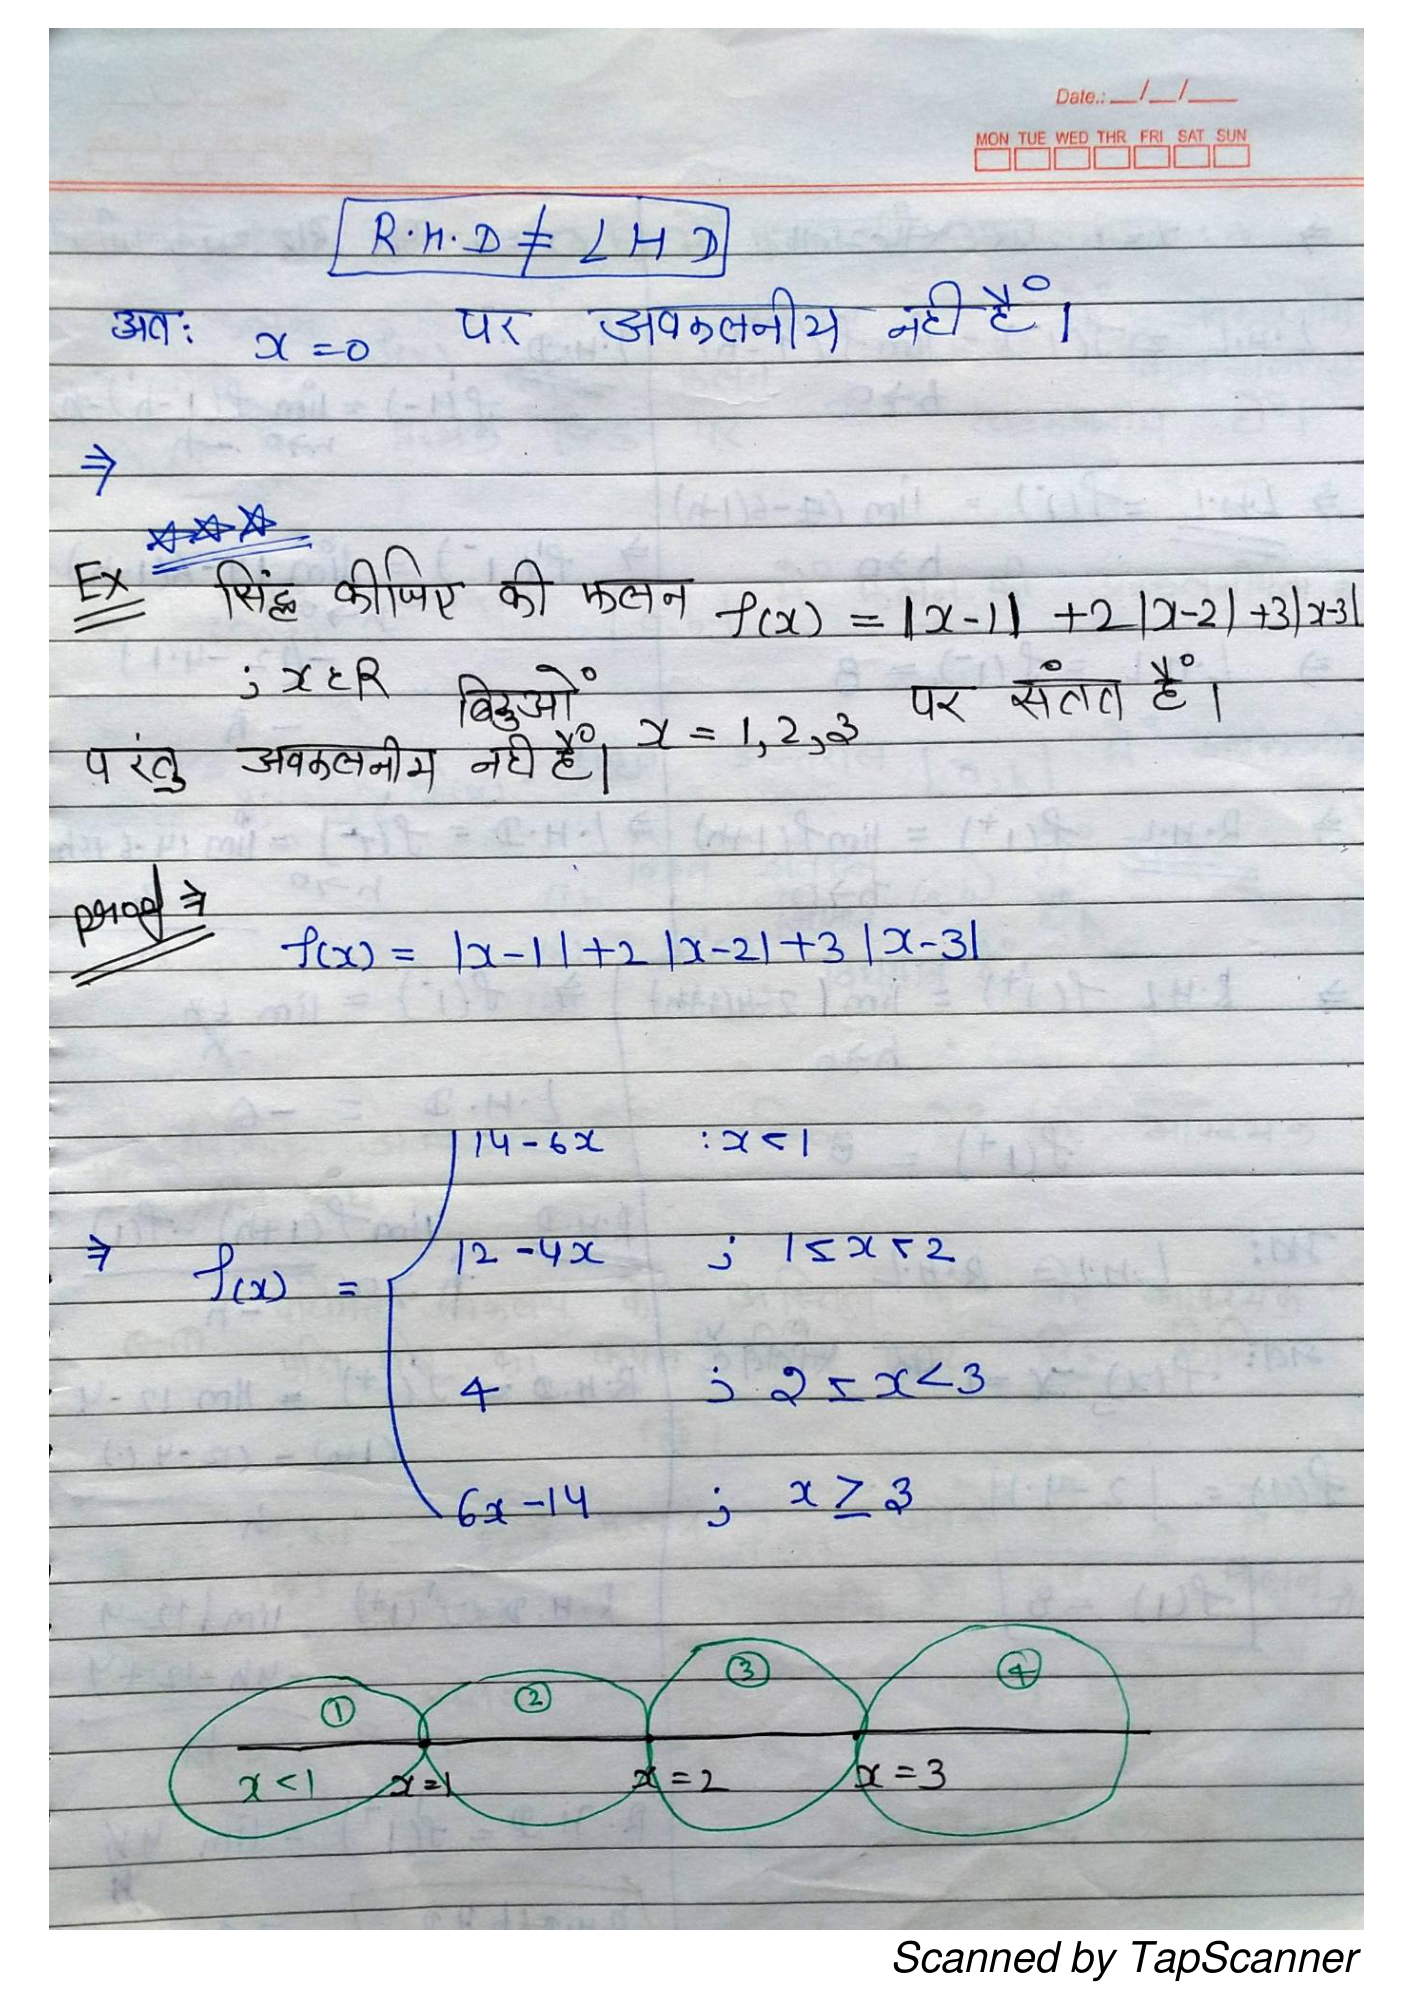 Date.: __/__/___
MON TUE WED THR FRI SAT SUN
R.H.D ≠ LHD
अतः x = 0 पर अवकलनीय नही हैं।
⇒
Ex सिद्ध कीजिए की फलन f(x) = |x-1| +2|x-2|+3|x-3|
; x ε R बिंदुओं x = 1, 2, 3 पर संतत हैं।
परंतु अवकलनीय नही हैं।
proof ⇒
f(x) = |x-1|+2|x-2|+3|x-3|
14-6x : x < 1
⇒ f(x) = 12-4x ; 1 ≤ x < 2
4 ; 2 ≤ x < 3
6x-14 ; x ≥ 3
① ② ③ ④
x < 1 x = 1 x = 2 x = 3
Scanned by TapScanner